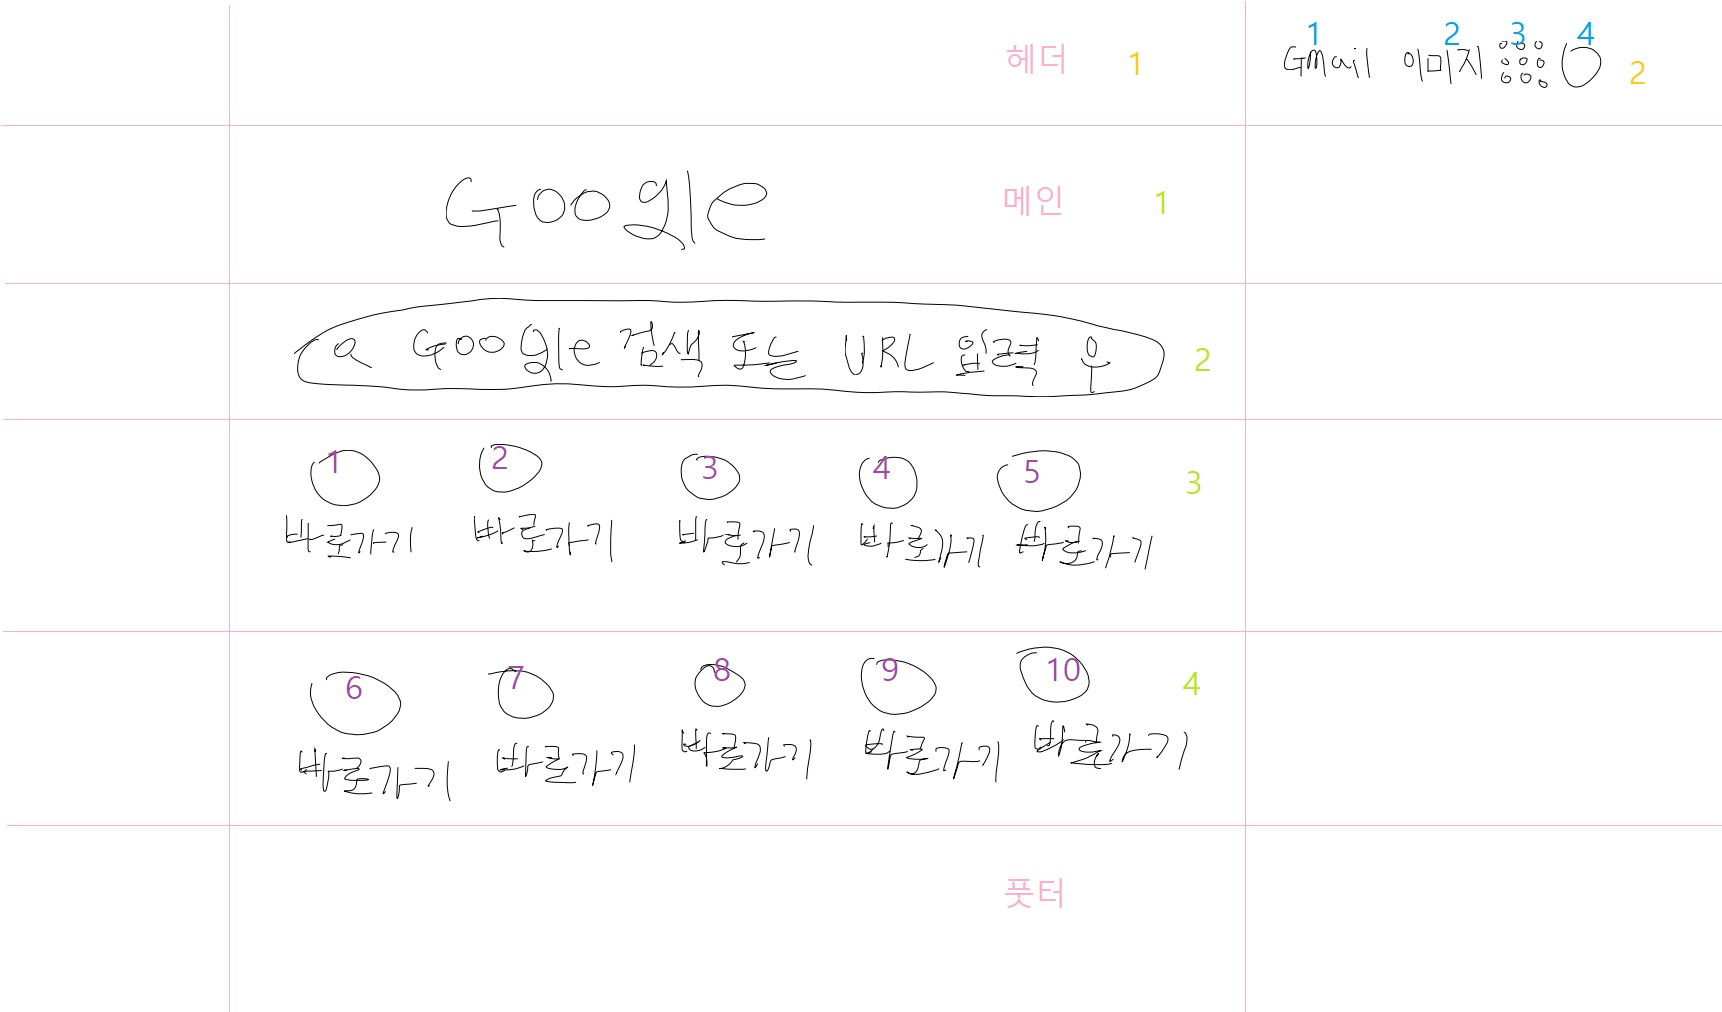 1 2 3 4
헤더 1 Gmail 이미지 2
Google 메인 1
Google 검색 또는 URL 입력 2
1 2 3 4 5 3
바로가기 바로가기 바로가기 바로가기 바로가기
6 7 8 9 10 4
바로가기 바로가기 바로가기 바로가기 바로가기
풋터